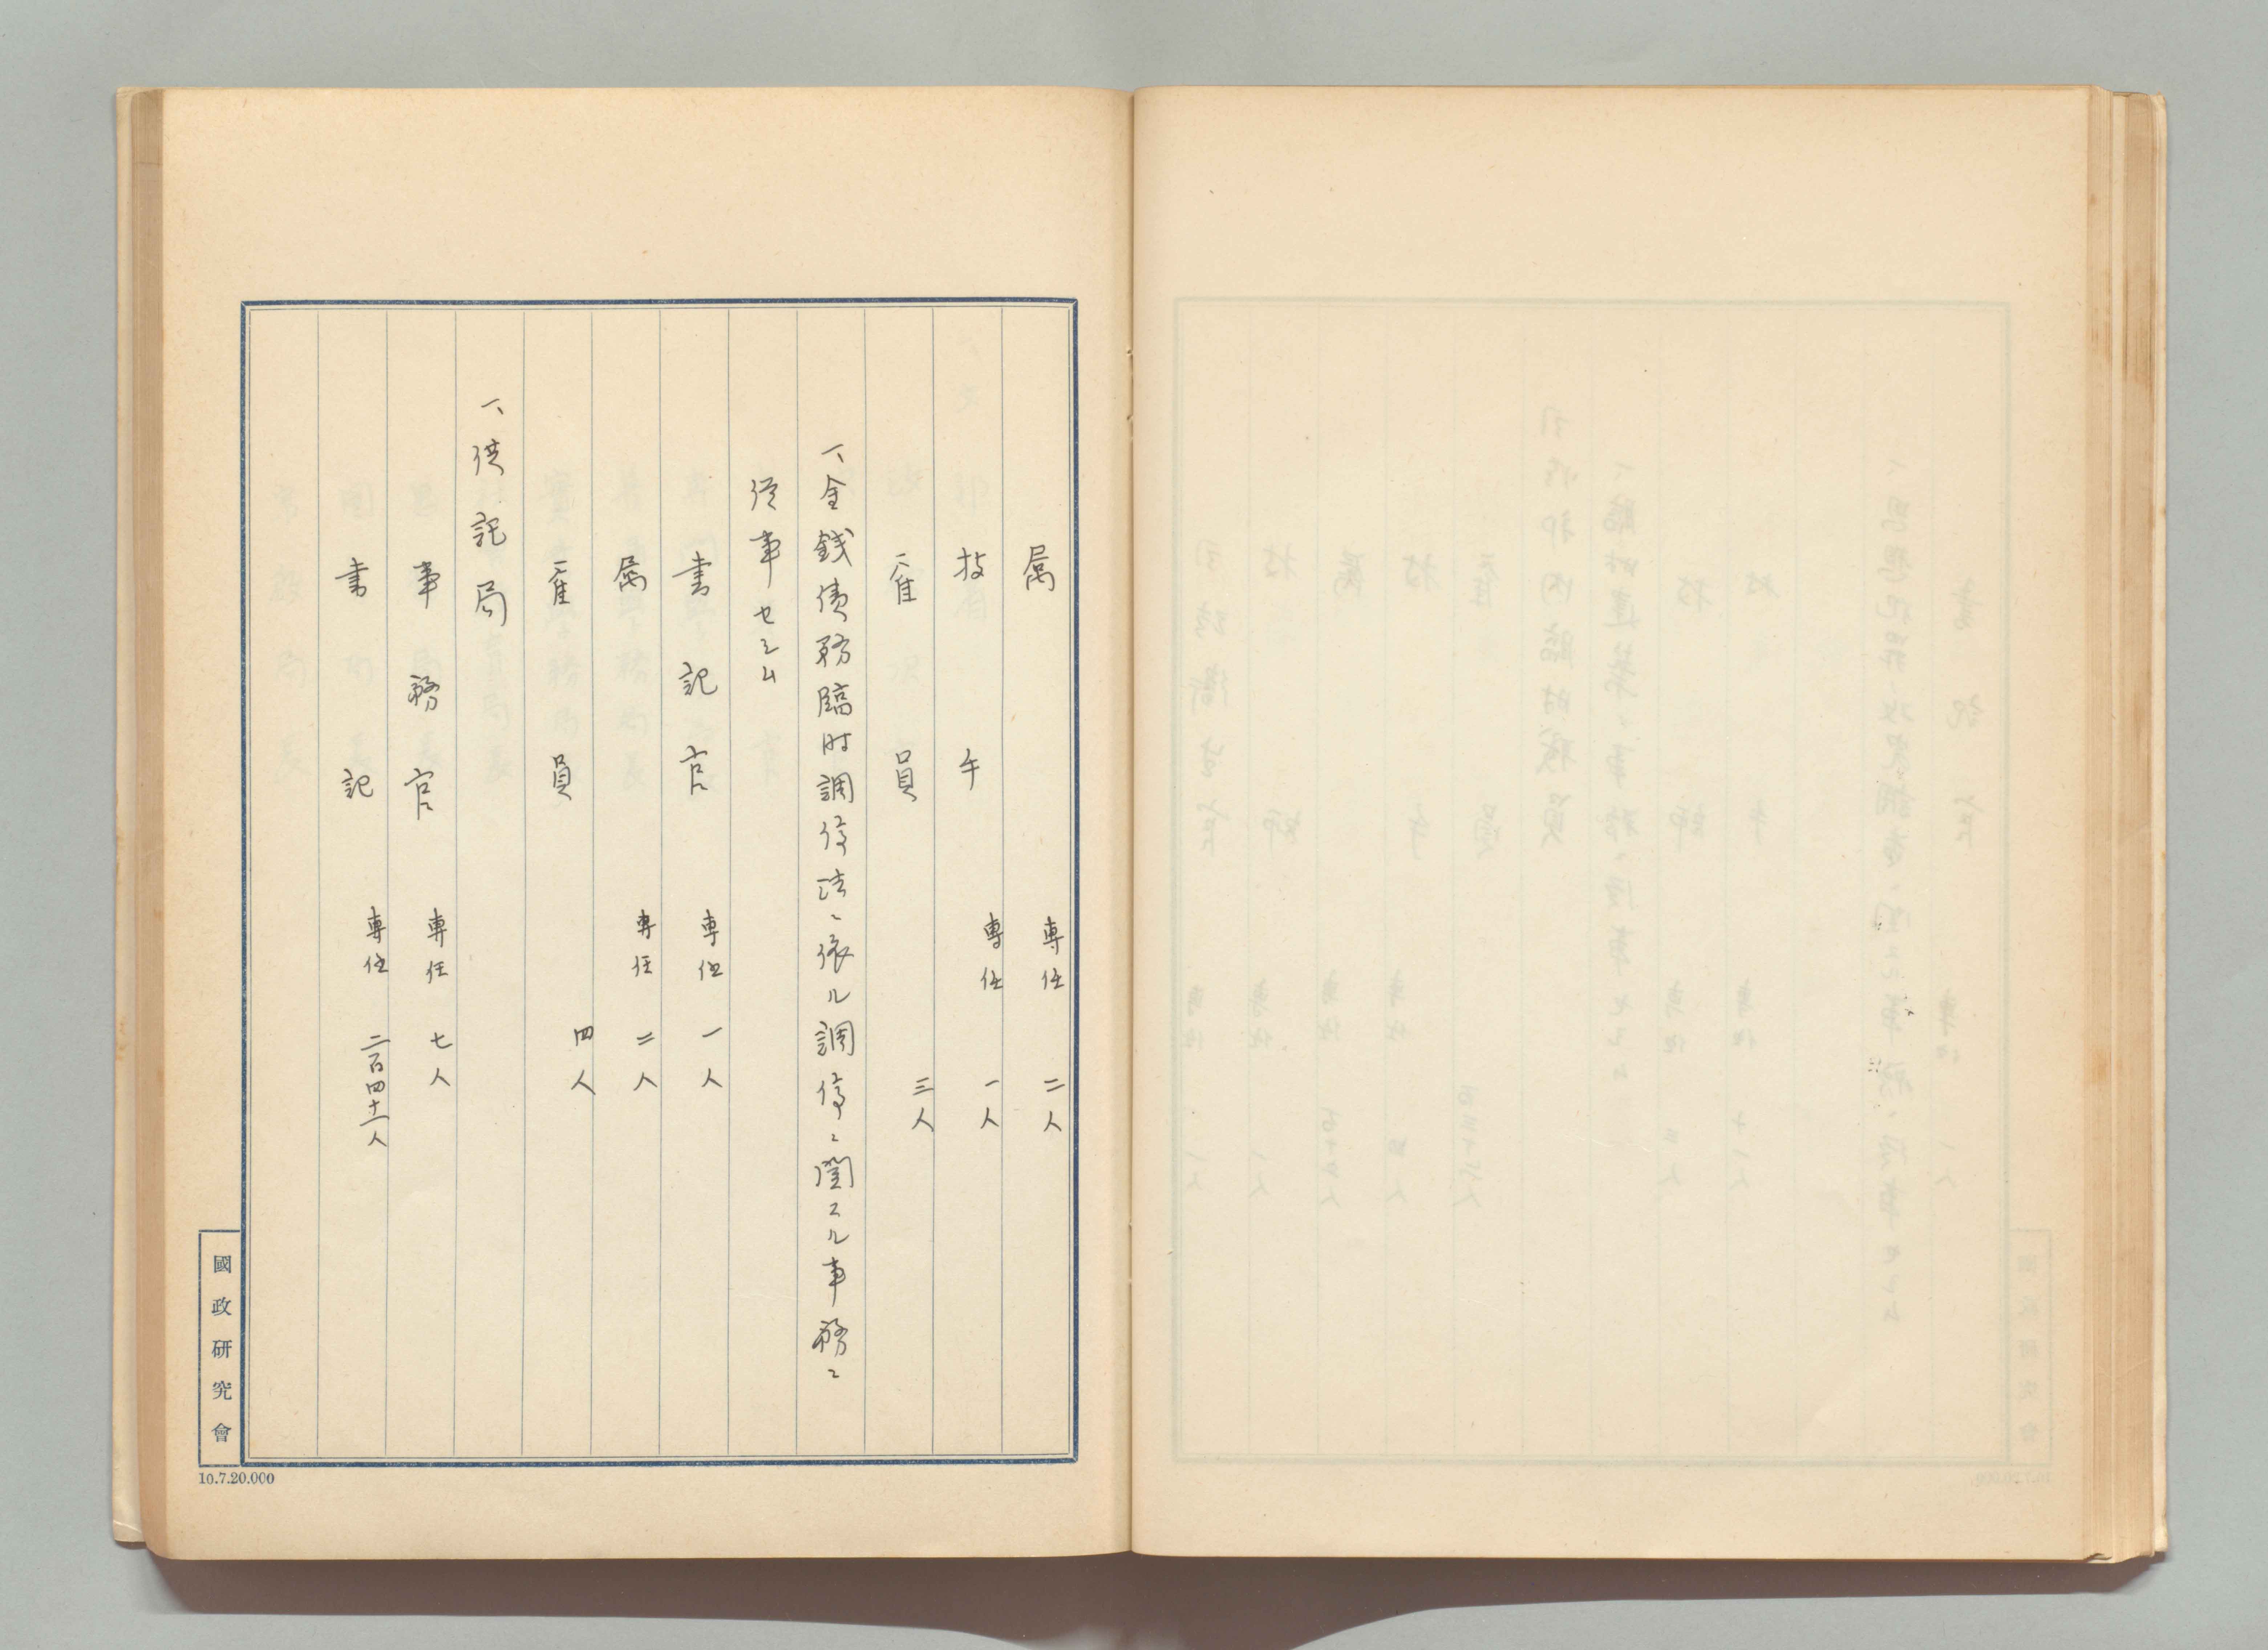 属 専任 二人
技手 専任 一人
雇員 三人
一、金銭債務臨時調停法ニ依ル調停ニ関スル事務ニ
従事セシム
書記官 専任 一人
属 専任 二人
雇員 四人
一、供託局
事務官 専任 七人
書記 専任 二百四十二人
國政研究會
10.7.20.000